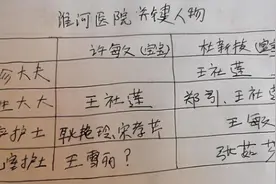 淮河医院关键人物
许敏(宝宝) 杜新枝(宝宝
大夫 王社莲
生大夫 王社莲 郑引、王社莲
护士 耿艳玲、宋孝芹 王敏
护士 王雪丽? 张茹